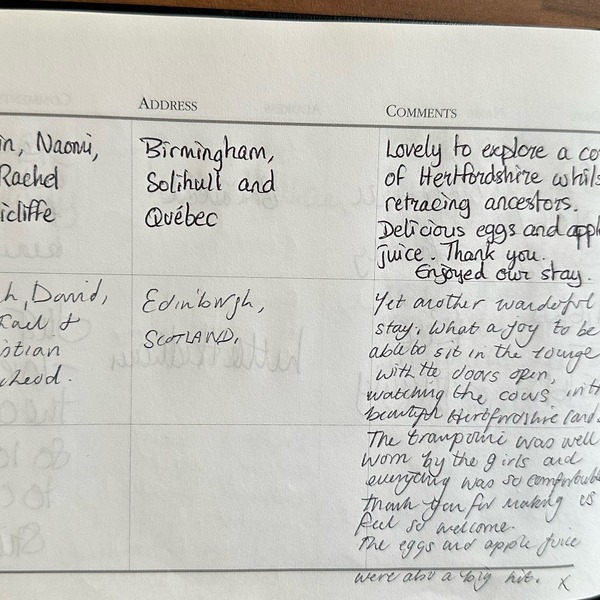 ADDRESS
COMMENTS
in, Naomi,
Rachel
icliffe
Birmingham,
Solihull and
Québec
Lovely to explore a co
of Hertfordshire whils
retracing ancestors.
Delicious eggs and appl
juice. Thank you.
Enjoyed our stay.
h, David,
&
stian
cleod.
Edinburgh,
SCOTLAND.
Yet another wonderful
stay. What a joy to be
able to sit in the lounge
with the doors open,
watching the cows in th
beautiful Hertfordshire lands
The trampoline was well
worn by the girls and
everything was so comfortable
thank you for making us
feel so welcome.
The eggs and apple juice
were also a big hit. X